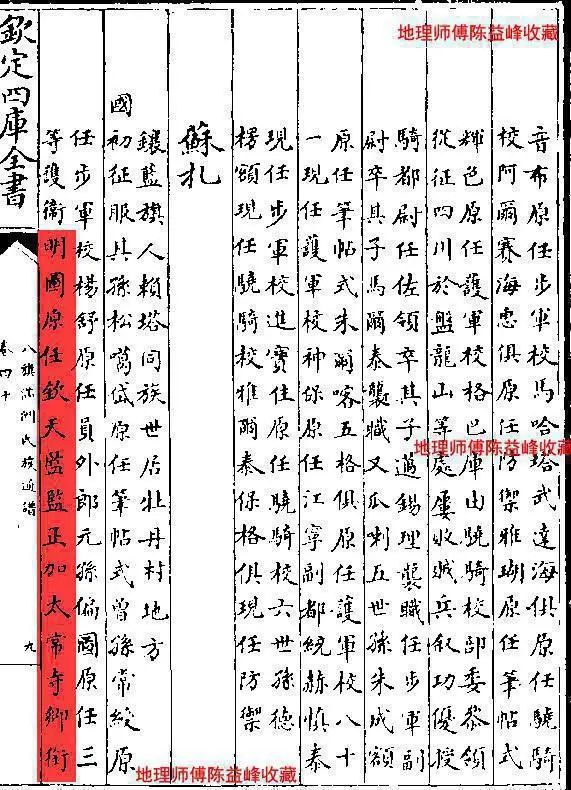 地理师傅陈益峰收藏
音布原任步軍校馬哈塔武達海俱原任驍騎
校阿爾賽海忠俱原任防禦雅瑚原任筆帖式
輝色原任護軍校格巴庫由驍騎校部委參領
從征四川於盤龍山等處屢敗賊兵叙功優授
騎都尉任佐領卒其子邁錫理襲職任步軍副
尉卒其子馬爾泰襲職又瓜喇五世孫朱成額
原任筆帖式朱爾喀五格俱原任護軍校八十
一現任護軍校神保原任江寧副都統赫慎泰
現任步軍校進寶住原任驍騎校六世孫德
楞額現任驍騎校雅爾泰保格俱現任防禦
蘇札
鑲藍旗人賴塔同族世居壯丹村地方
國初征服其孫松噶岱原任筆帖式曾孫常綬原
任步軍校楊舒原任員外郎元孫偏圖原任三
等護衛明圖原任欽天監監正加太常寺卿銜
欽定四庫全書
八旗滿洲氏族通譜
卷四十
九
地理师傅陈益峰收藏
地理师傅陈益峰收藏